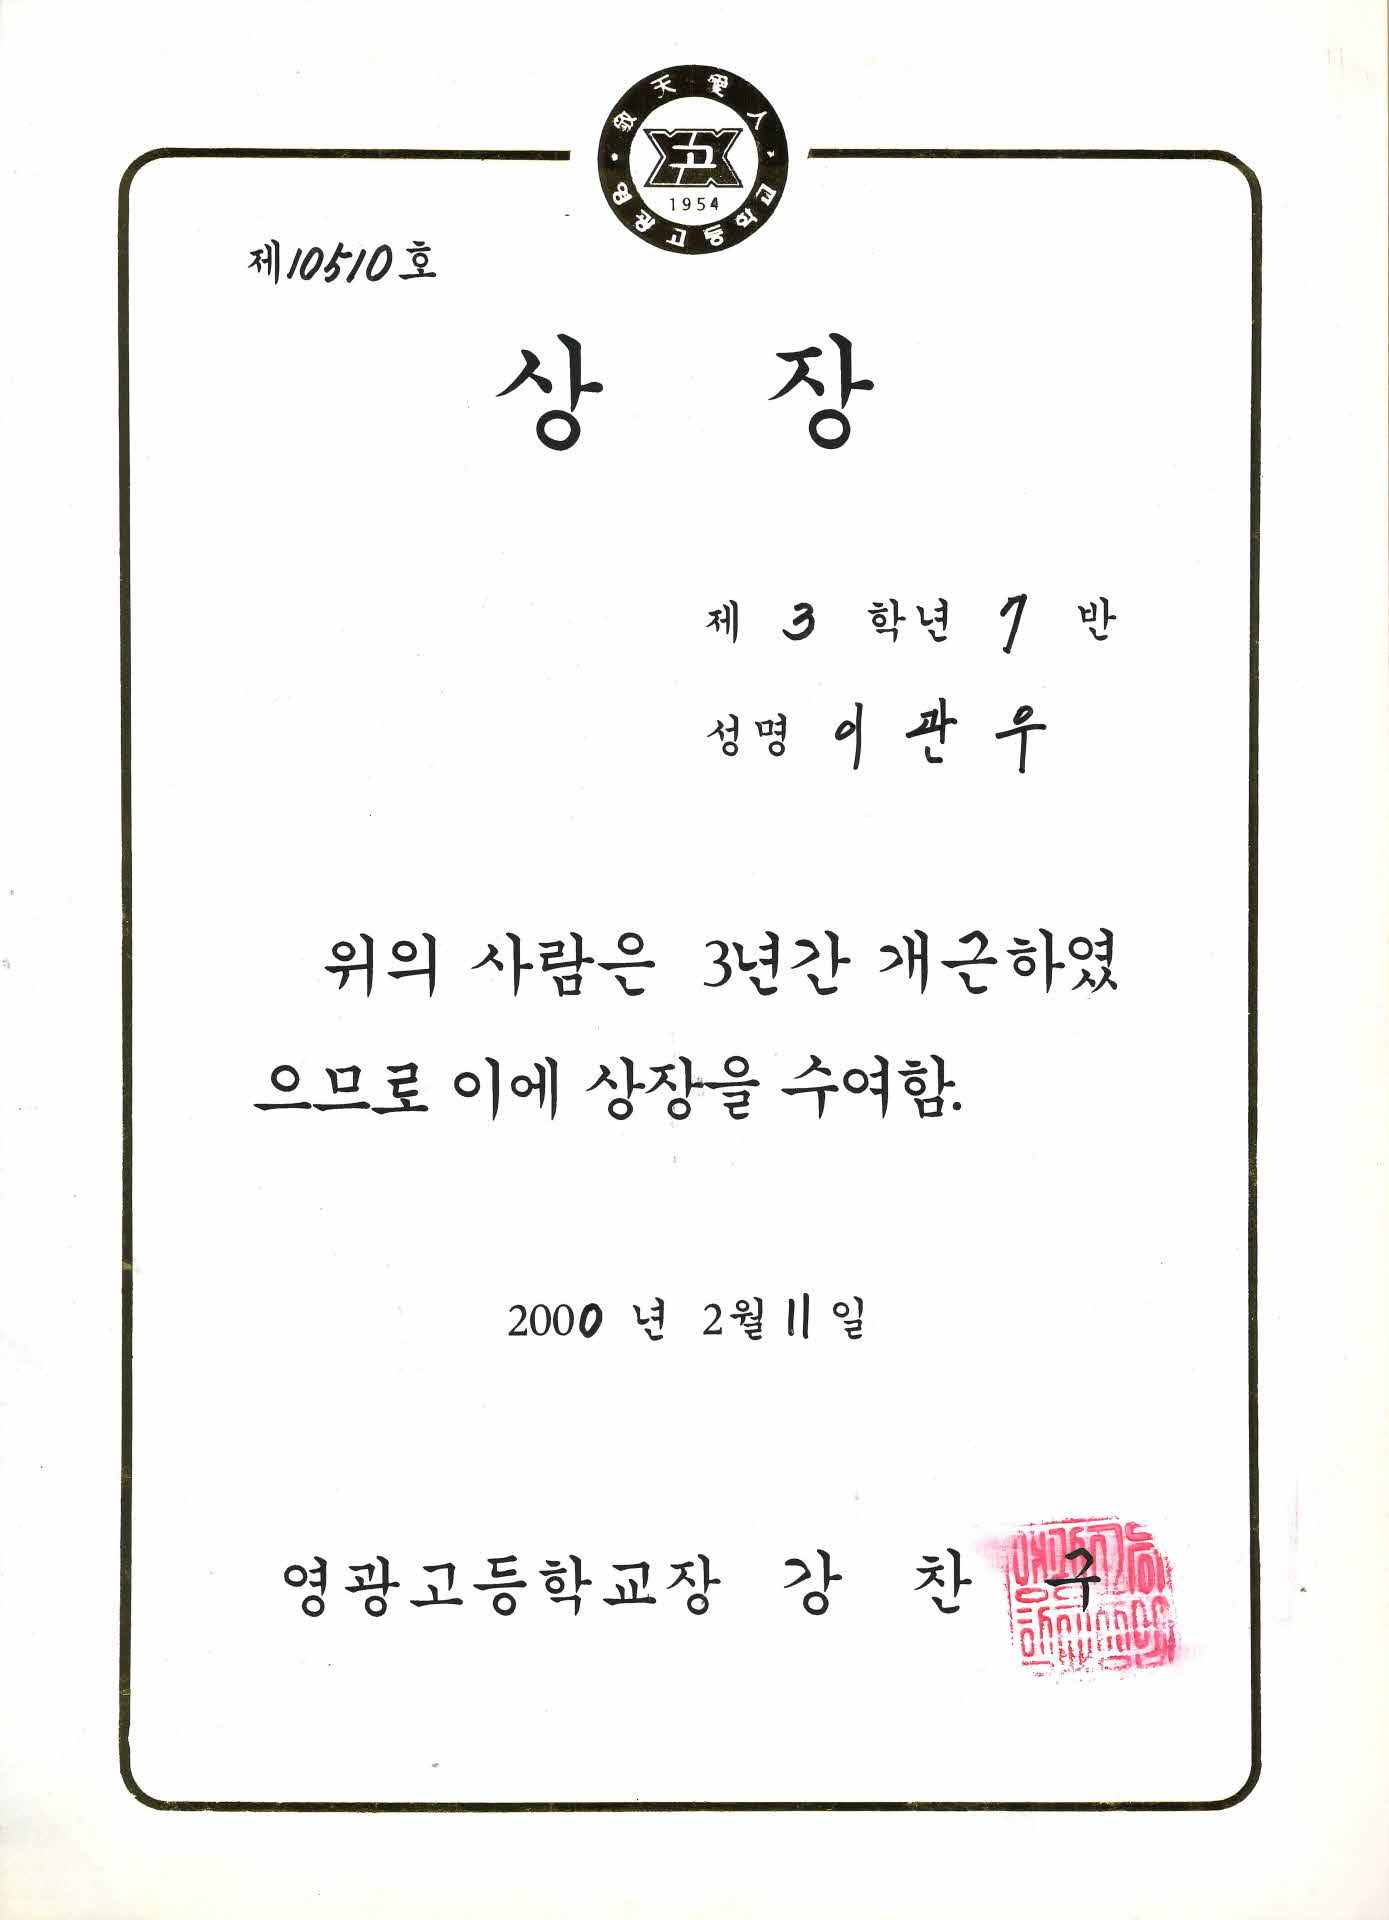 敬天愛人
영광고등학교
1954
제10510호
상 장
제 3 학년 7 반
성명 이관우
위의 사람은 3년간 개근하였
으므로 이에 상장을 수여함.
2000 년 2월 11 일
영광고등학교장 강 찬 구